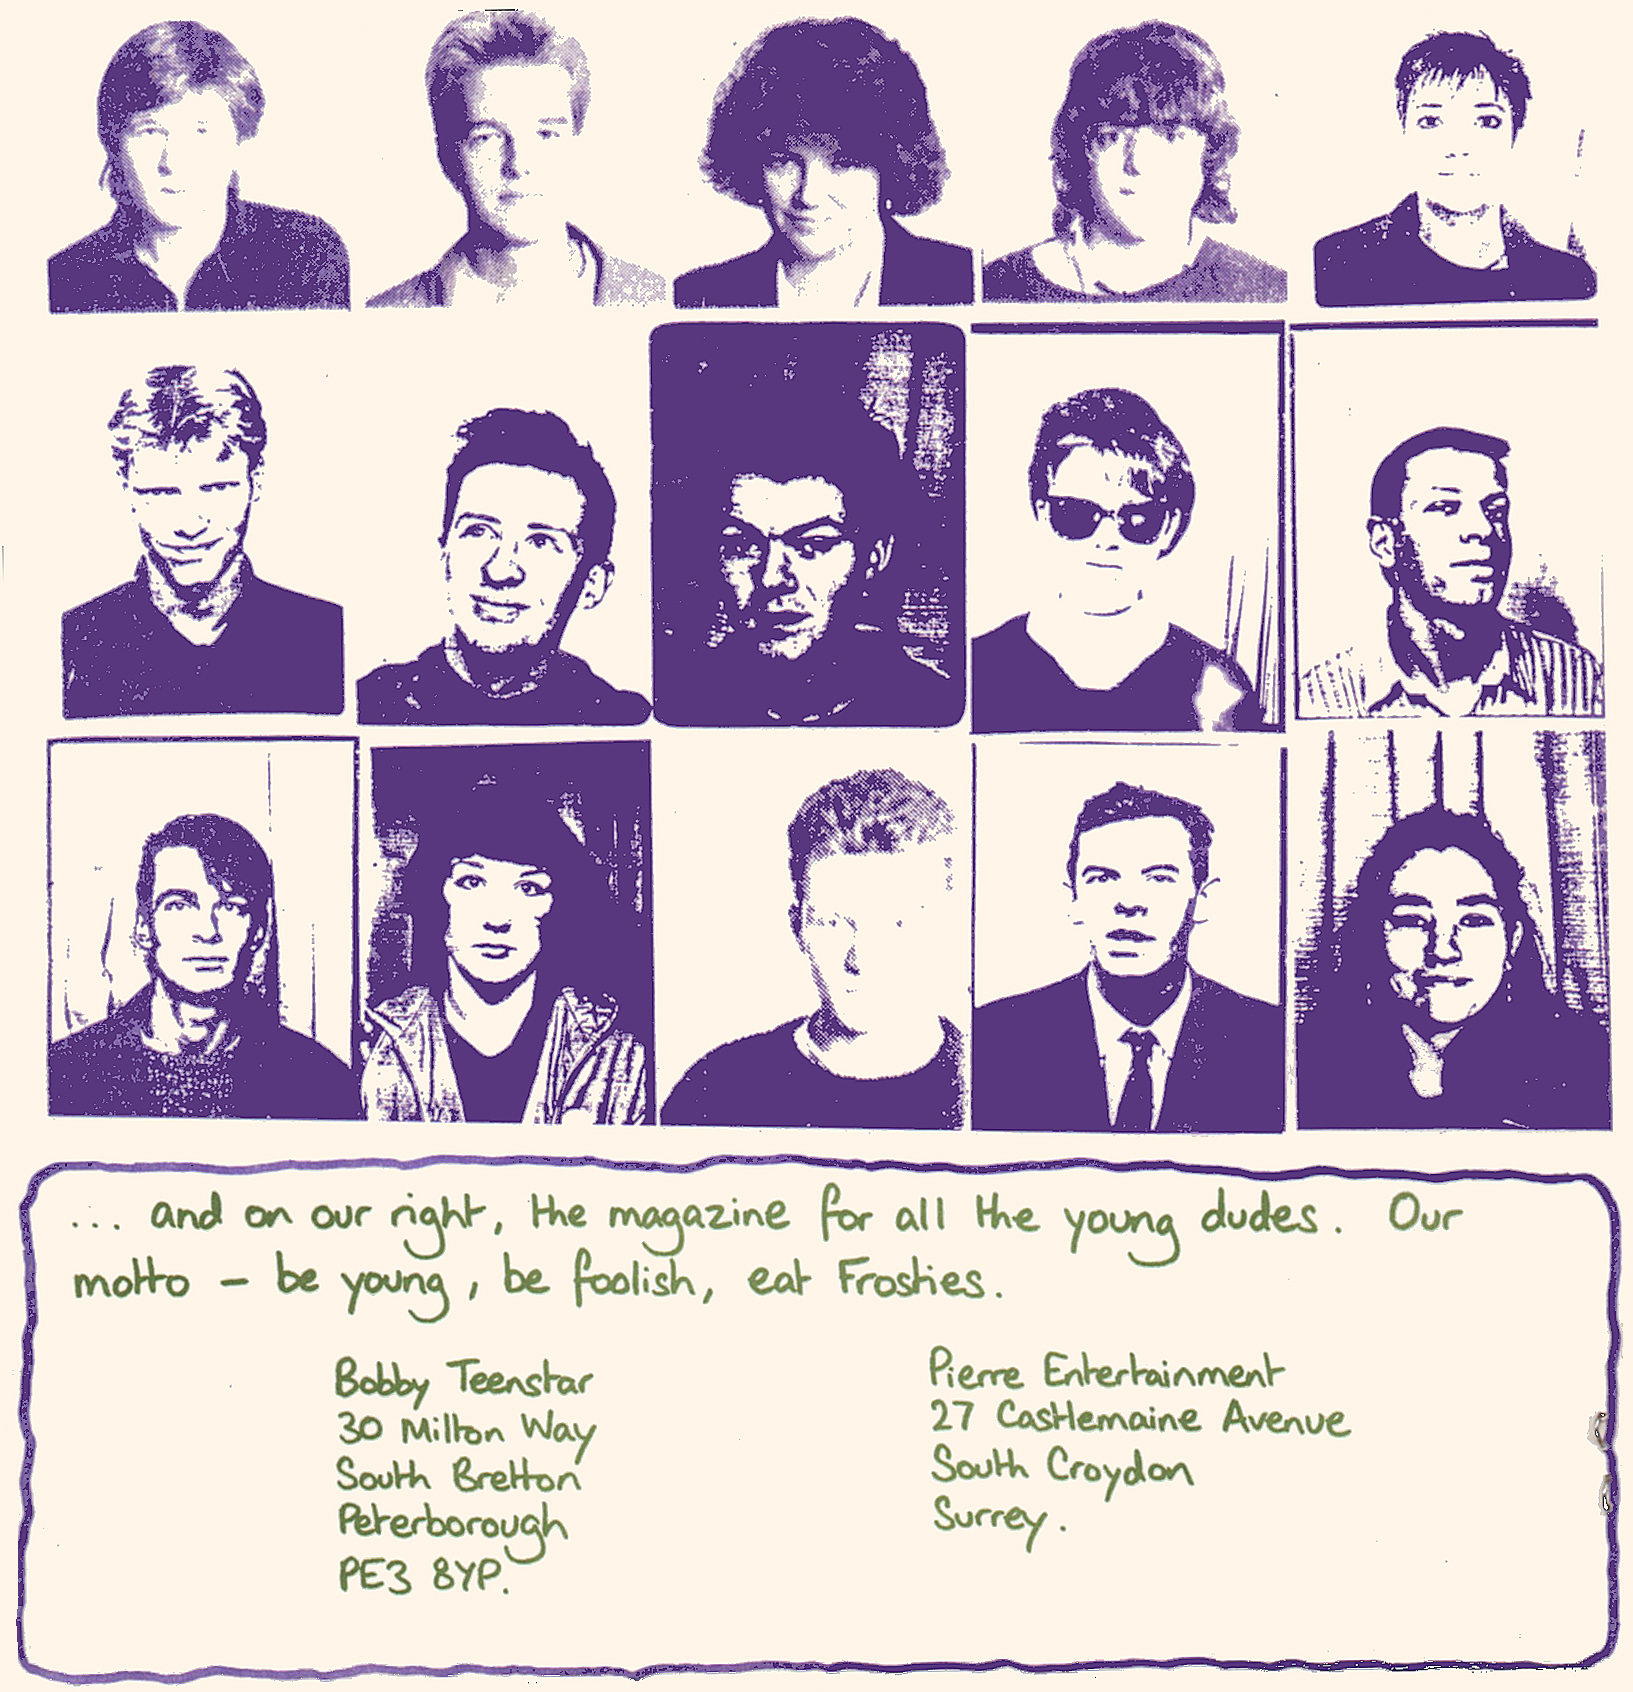 ... and on our right, the magazine for all the young dudes. Our
motto - be young, be foolish, eat Frosties.
Bobby Teenstar
30 Milton Way
South Bretton
Peterborough
PE3 8YP.
Pierre Entertainment
27 Castlemaine Avenue
South Croydon
Surrey.